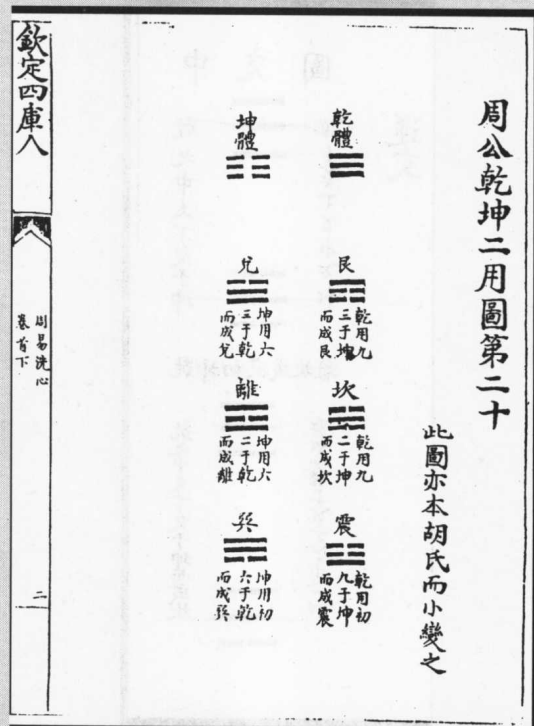 周公乾坤二用圖第二十
此圖亦本胡氏而小變之
乾體
艮
乾用九
三于坤
而成艮
坎
乾用九
二于坤
而成坎
震
乾用初
九于坤
而成震
坤體
兌
坤用六
三于乾
而成兌
離
坤用六
二于乾
而成離
巽
坤用初
六于乾
而成巽
欽定四庫全
周易洗心
卷首下
二